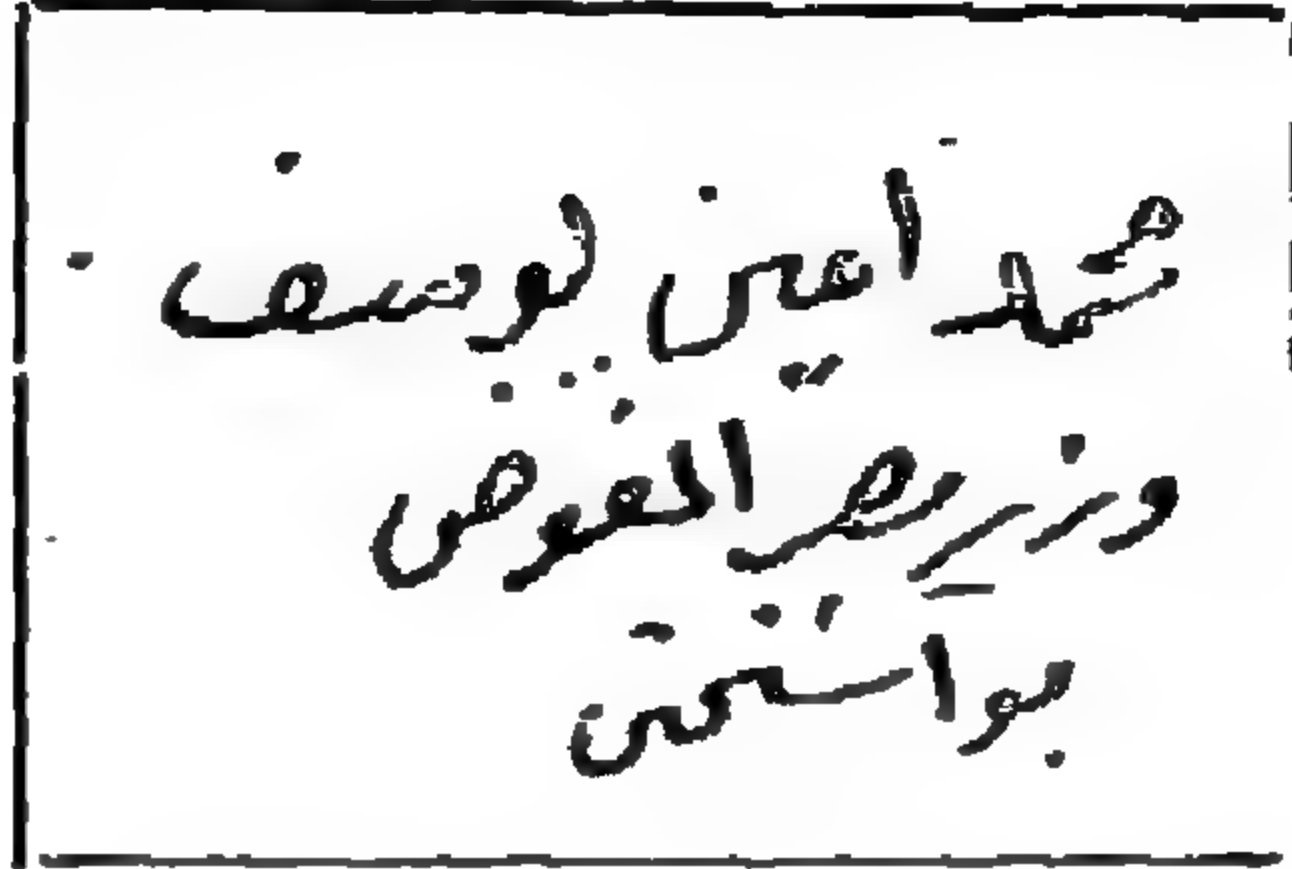 محمد أمين يوسف
وزير مصر المفوض
بواشنتن